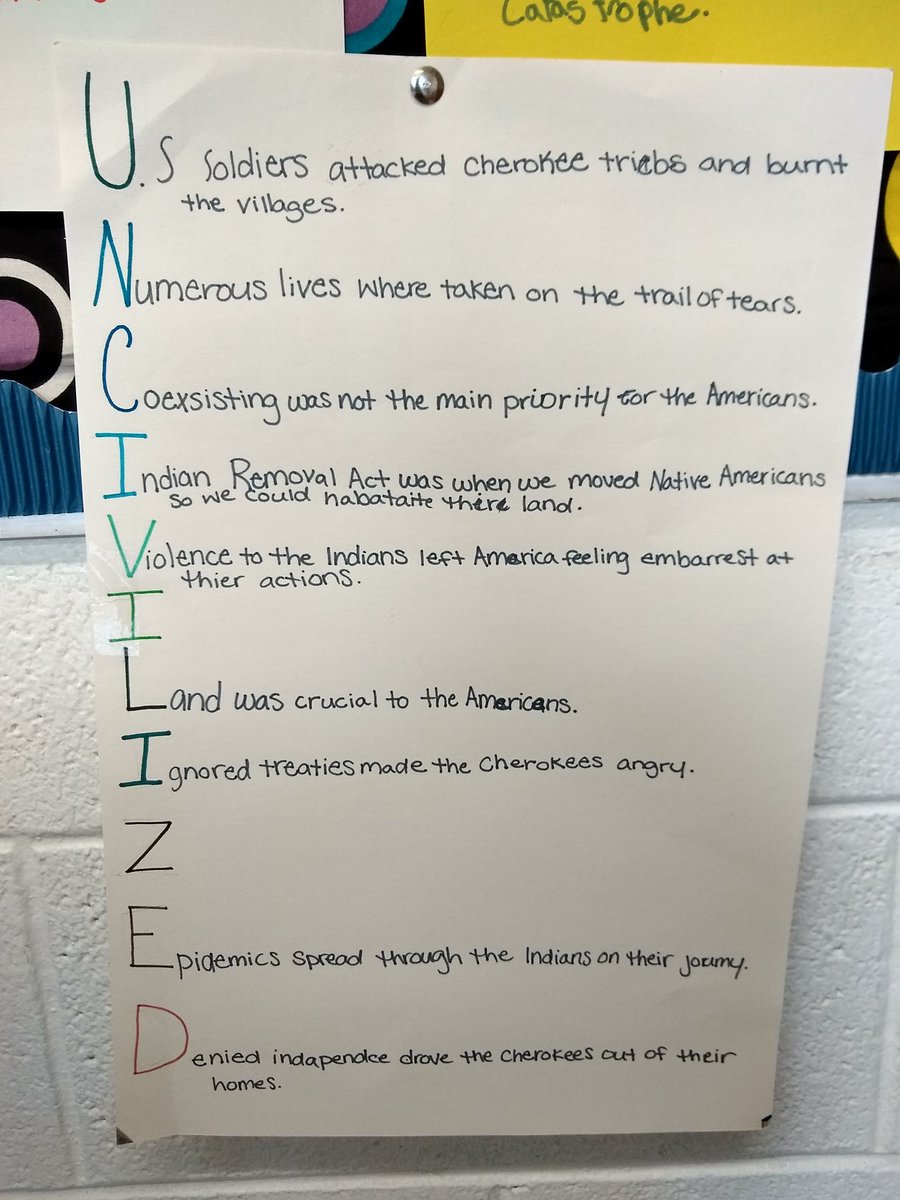 Catastrophe.
U.S Soldiers attacked Cherokee triebs and burnt
the villages.
Numerous lives where taken on the trail of tears.
Coexsisting was not the main priority for the Americans.
Indian Removal Act was when we moved Native Americans
so we could habataite there land.
Violence to the Indians left America feeling embarrest at
thier actions.
I
Land was crucial to the Americans.
Ignored treaties made the Cherokees angry.
Z
Epidemics spread through the Indians on their journy.
Denied indapendce drove the Cherokees out of their
homes.